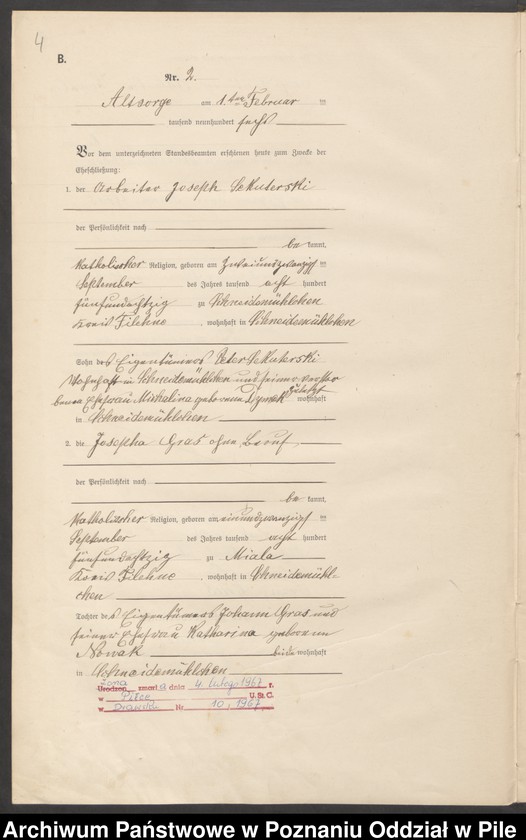 4
B.
Nr. 2.
Altsorge am 1. ten Februar
tausend neunhundert sechs
Vor dem unterzeichneten Standesbeamten erschienen heute zum Zwecke der
Eheschließung:
1. der Arbeiter Joseph Sekuterski
der Persönlichkeit nach
be kannt,
katholischer Religion, geboren am zweiundzwanzigsten
September des Jahres tausend acht hundert
fünfundachtzig zu Schneidemühlchen
Kreis Filehne, wohnhaft in Schneidemühlchen
Sohn des Eigentümers Peter Sekuterski
wohnhaft in Schneidemühlchen und seiner verstor
benen Ehefrau Michalina geborenen Dymek zuletzt wohnhaft
in Schneidemühlchen
2. die Josepha Gras ohne Beruf
der Persönlichkeit nach
be kannt,
katholischer Religion, geboren am einundzwanzigsten
September des Jahres tausend acht hundert
fünfundachtzig zu Miala
Kreis Filehne, wohnhaft in Schneidemühl-
chen
Tochter des Eigentümers Johann Gras und
seiner Ehefrau Katharina geborenen
Nowak beide wohnhaft
in Schneidemühlchen
Żona
Urodzon. zmarł a dnia 4. lutego 1967 r.
w Piłce U.S.C.
w Drawsku Nr 10/1967
Archiwum Państwowe w Poznaniu Oddział w Pile